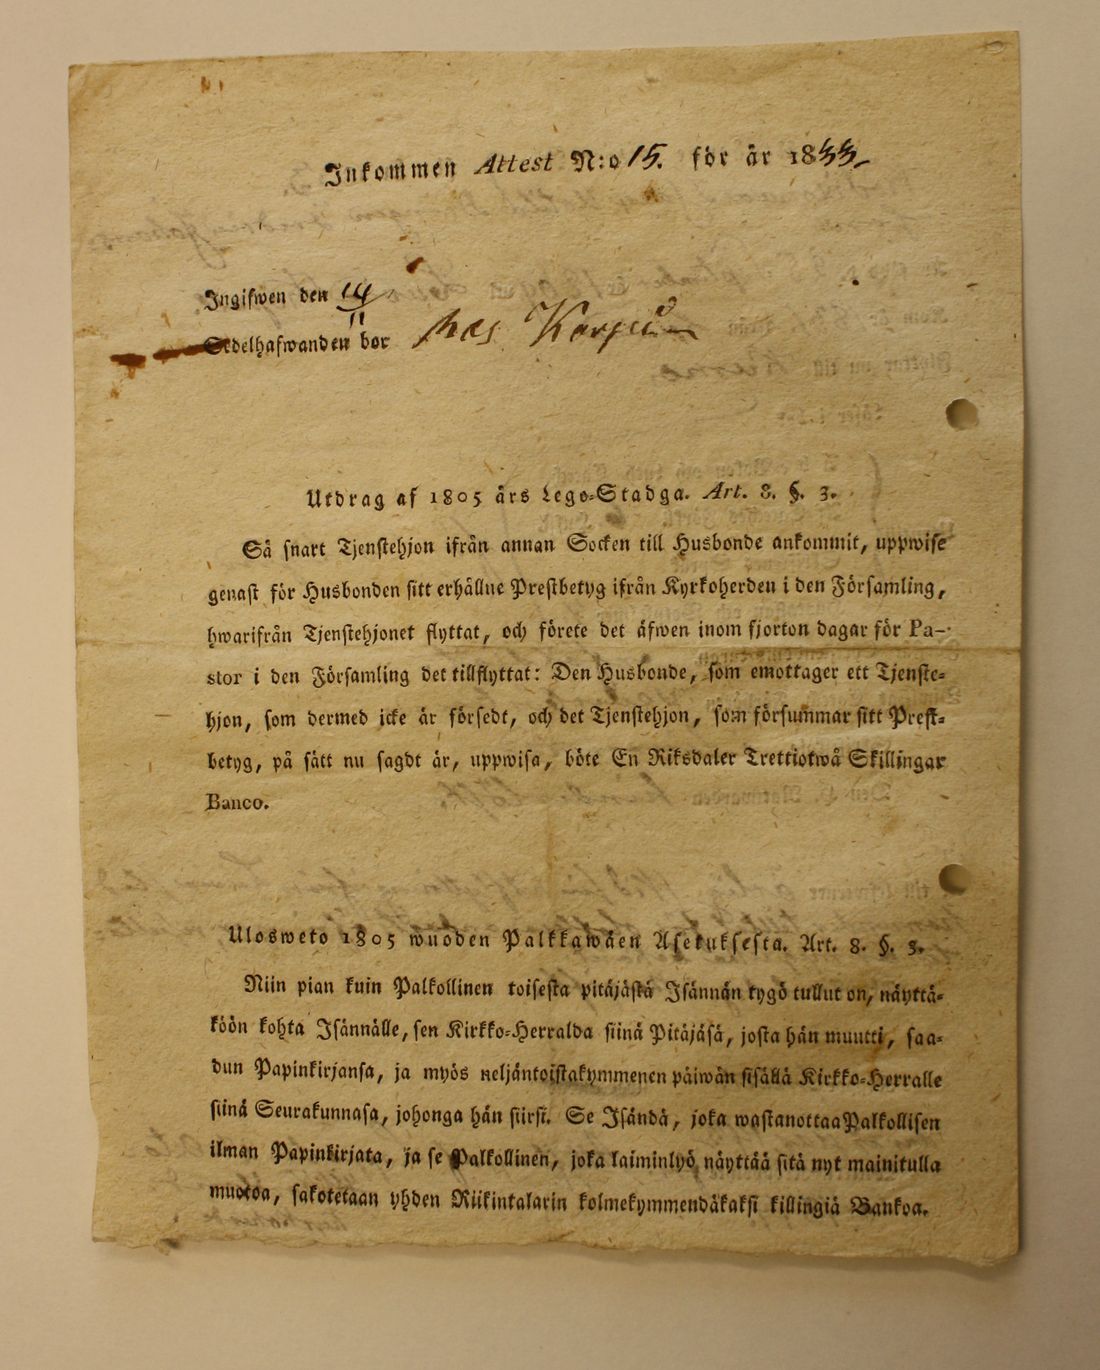 Inkommen Attest N:o 15. för år 1833.
Ingifwen den 14/11
Sedelhafwanden bor hos
Utdrag af 1805 års Lego-Stadga. Art. 8. §. 3.
Så snart Tjenstehjon ifrån annan Socken till Husbonde ankommit, uppwise
genast för Husbonden sitt erhållne Prestbetyg ifrån Kyrkoherden i den Församling,
hwarifrån Tjenstehjonet flyttat, och förete det äfwen inom fjorton dagar för Pa-
stor i den Församling det tillflyttat: Den Husbonde, som emottager ett Tjenste-
hjon, som dermed icke är försedt, och det Tjenstehjon, som försummar sitt Prest-
betyg, på sätt nu sagdt är, uppwisa, böte En Riksdaler Trettiotwå Skillingar
Banco.
Ulosweto 1805 wuoden Palkkawäen Asetuksesta. Art. 8. §. 3.
Niin pian kuin Palkollinen toisesta pitäjästä Isännän tygö tullut on, näyttä-
köön kohta Isännälle, sen Kirkko-Herralda siinä Pitäjäsä, josta hän muutti, saa-
dun Papinkirjansa, ja myös neljäntoistakymmenen päiwän sisällä Kirkko-Herralle
siinä Seurakunnasa, johonga hän siirsi. Se Isändä, joka wastanottaa Palkollisen
ilman Papinkirjata, ja se Palkollinen, joka laiminlyö näyttää sitä nyt mainitulla
muotoa, sakotetaan yhden Riikintalarin kolmekymmendäkaksi killingiä Bankoa.